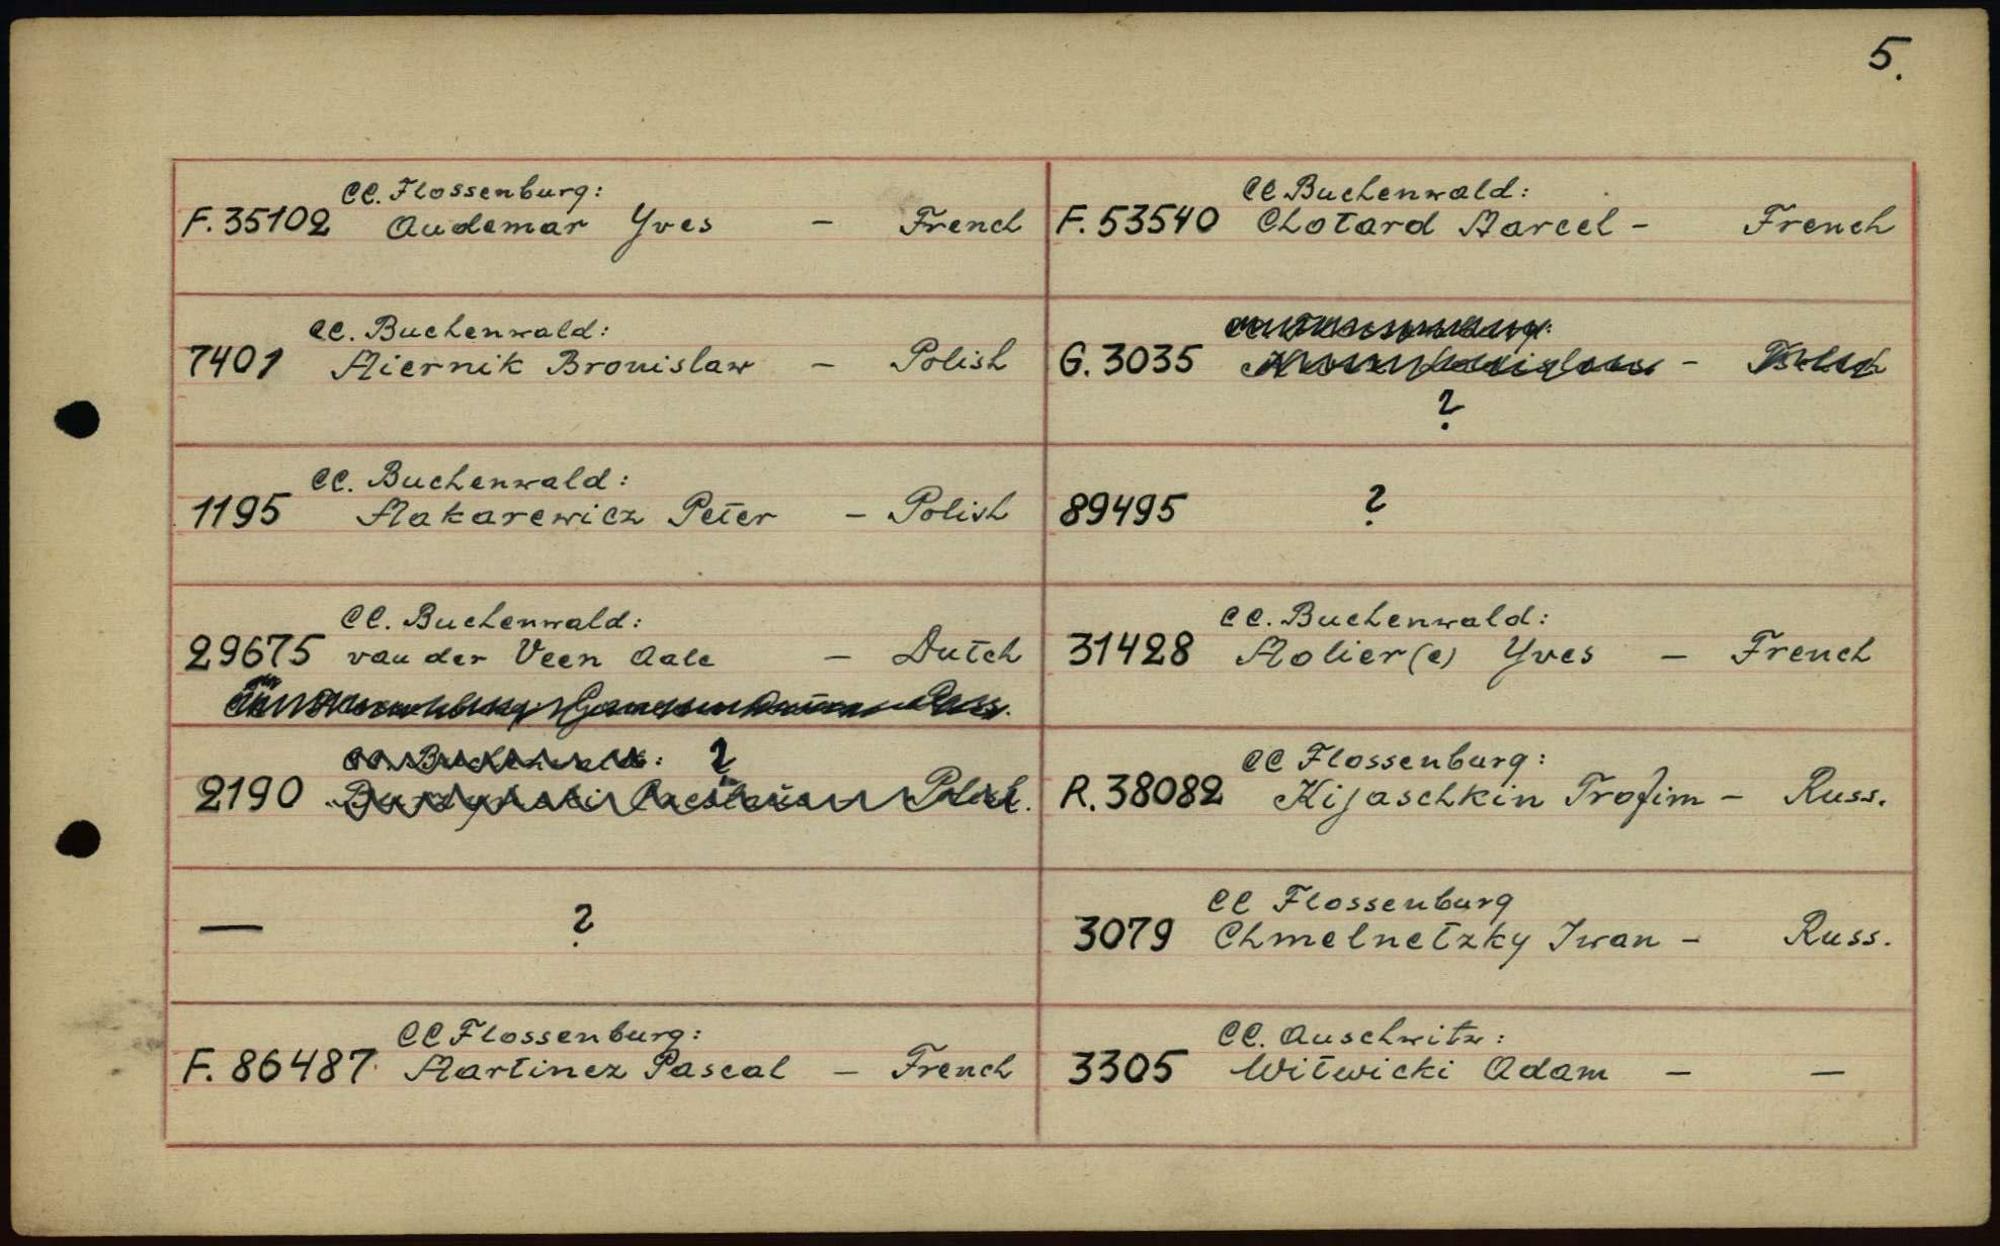 5.
CC. Flossenburg:
F. 35102 Audemar Yves - French
CC. Buchenwald:
7401 Miernik Bronislaw - Polish
CC. Buchenwald:
1195 Makarewicz Peter - Polish
CC. Buchenwald:
29675 van der Veen Aale - Dutch
Russ.
?
2190 Polish.
— ?
CC Flossenburg:
F. 86487 Martinez Pascal - French
CC Buchenwald:
F. 53540 Chotard Marcel - French
G. 3035 -
?
89495 ?
CC. Buchenwald:
31428 Molier(e) Yves - French
CC Flossenburg:
R. 38082 Kijaschkin Trofim - Russ.
CC Flossenburg
3079 Chmelnetzky Iwan - Russ.
CC. Auschwitz:
3305 Witwicki Adam - —